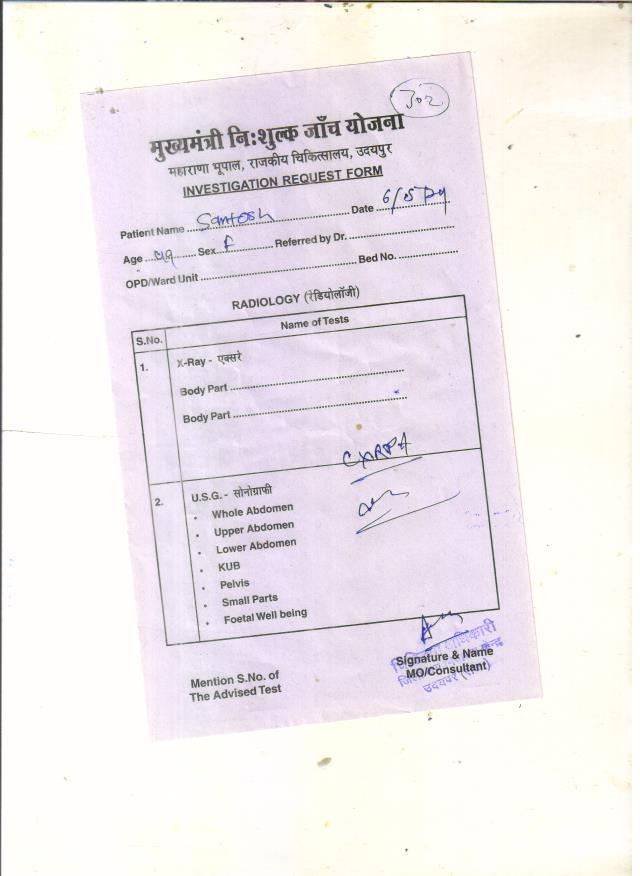 302
मुख्यमंत्री निःशुल्क जाँच योजना
महाराणा भूपाल, राजकीय चिकित्सालय, उदयपुर
INVESTIGATION REQUEST FORM
Patient Name Santosh Date 6/5/24
Age Sex F Referred by Dr.
OPD/Ward Unit Bed No.
RADIOLOGY (रेडियोलॉजी)
S.No. Name of Tests
1. X-Ray - एक्सरे
Body Part
Body Part
CXRPA
2. U.S.G. - सोनोग्राफी
• Whole Abdomen
• Upper Abdomen
• Lower Abdomen
• KUB
• Pelvis
• Small Parts
• Foetal Well being
Mention S.No. of
The Advised Test
Signature & Name
MO/Consultant
अधिकारी
उदयपुर